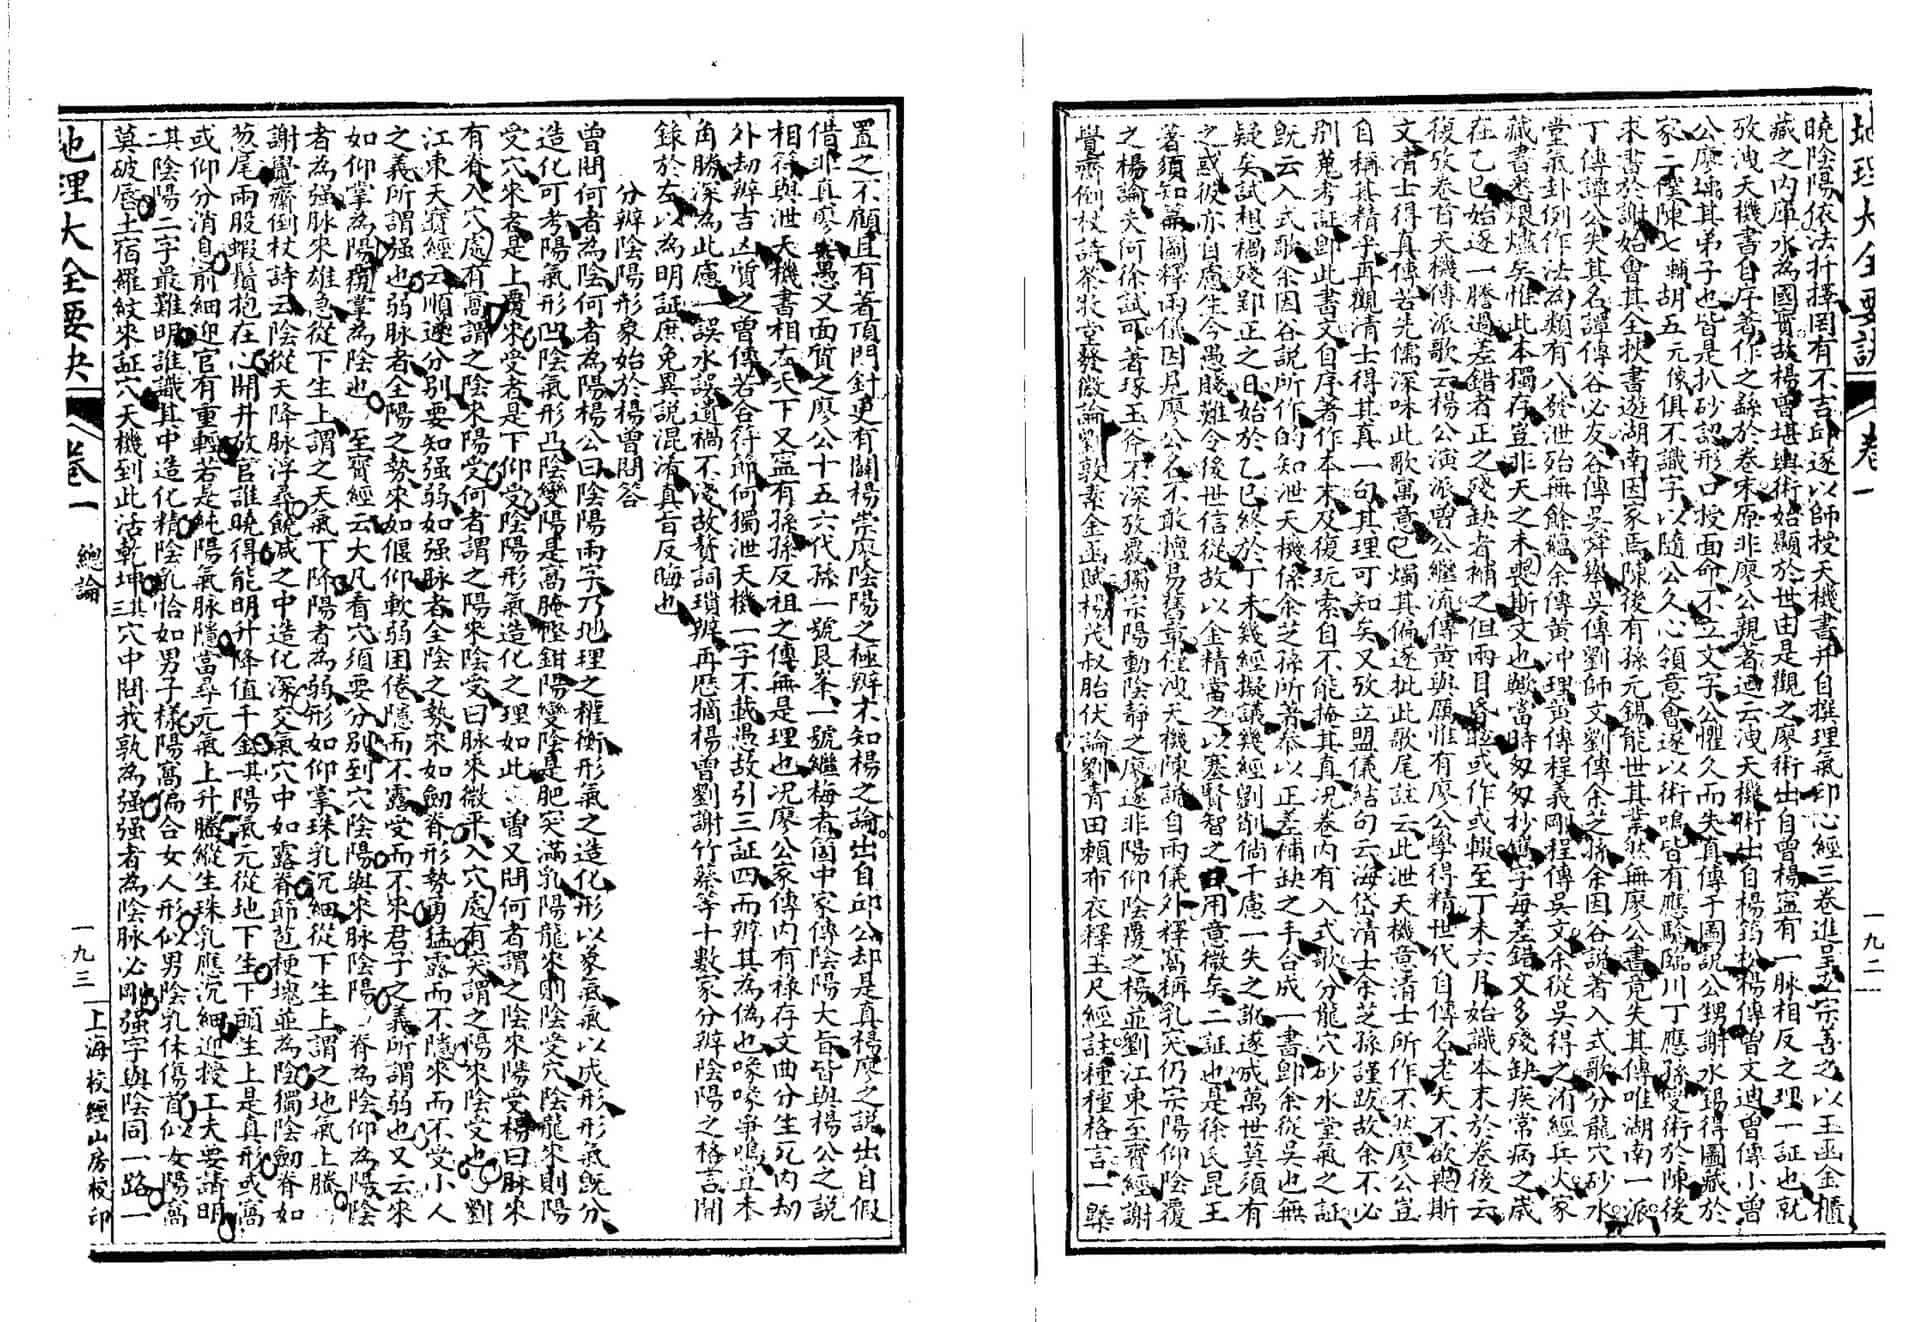 地理大全要訣 卷一 一九二
曉陰陽依法扦擇罔有不吉邱遂以師授天機書并自撰理氣印心經三卷進呈玄宗善之以玉函金櫃
藏之内庫永為國寶故楊曾堪輿術始顯於世由是觀之廖術出自曾楊寧有一脉相反之理一証也就
攷洩天機書自序著作之繇於卷末原非廖公親著迺云洩天機術出自楊筠松楊傳曾文迪曾傳小曾
公廖瑀其弟子也皆是扒砂認形口授面命不立文字公懼久而失真傳于圖說公甥謝水錫得圖藏於
家二陳七輔胡五元像俱不識字以隨公久心領意會遂以術鳴皆有應驗臨川丁應孫受術於陳後
來書於謝始會其全挾書遊湖南因家焉陳後有孫元錫能世其業然無廖公書竟失其傳唯湖南一派
丁傳譚公失其名譚傳谷必友谷傳吳舜舉吳傳劉師文劉傳余芝孫余因谷說著入式歌分龍穴砂水
堂氣卦例作法為類有八發泄殆無餘蘊余傳黄冲理黄傳程義剛程傳吳文余從吳得之洊經兵火家
藏書悉煨燼矣惟此本獨存豈非天之未喪斯文也歟當時匆匆抄寫字每差錯文多殘缺疾常病之歲
在乙巳始逐一謄過差錯者正之殘缺者補之但兩目昏眩或作或輟至丁未六月始識本末於卷後云
復攷卷首天機傳派歌云楊公演派曾公繼流傳黄與厲惟有廖公學得精世代自傳名老天不欲與斯
文清士得真傳若先儒深味此歌寓意已燭其偏遂批此歌尾註云此泄天機章清士所作不然廖公豈
自稱其精乎再觀清士得其真一句其理可知矣又攷立盟儀結句云海岱清士余芝孫謹跋故余不必
别蒐考証即此書文自序著作本末及復玩索自不能掩其真况卷内有入式歌分龍穴砂水堂氣之証
既云入式歌余因谷說所作的知泄天機係余芝孫所著忝以正差補缺之手合成一書即余從吳也無
疑矣試想禍殘鄞正之日始於乙巳終於丁未幾經擬議幾經劉削倘千慮一失之訛遂成萬世莫須有
之惑彼亦自慮生今愚賤難令後世信從故以金精當之以塞賢智之用意微矣二証也是徐氏昆玉
著須知篇圖釋兩儀因是廖公名不敢擅易舊章從洩天機陳說自兩儀外釋窩稱乳突仍宗陽仰陰覆
之楊論夫何徐試可著琢玉斧不深攷覈獨宗陽動陰靜之廖遂非陽仰陰覆之楊並劉江東至寶經謝
覺齋倒杖詩蔡牧堂發微論劉敦素金函賦楊茂叔胎伏論劉青田賴布衣釋玉尺經註種種格言一槩
置之不顧且有著頂門針更有闢楊崇廖陰陽之極辨不知楊之論出自邱公却是真楊廖之說出自假
借非真廖矣愚又面質之廖公十五六代孫一號艮峯一號繼梅者箇中家傳陰陽大旨皆與楊公之說
相符與泄天機書相左天下又寧有孫孫反祖之傳無是理也况廖公家傳内有祿存文曲分生死内劫
外劫辨吉凶質之曾傳若合符節何獨泄天機一字不載愚故引三証四而辨其為偽也喙喙爭鳴豈未
角勝深為此慮一誤水誤遺禍不淺故贅詞瑣辨再歷摘楊曾劉謝竹蔡等十數家分辨陰陽之格言開
錄於左以為明証庶免異說混淆真旨反晦也
分辨陰陽形象始於楊曾問答
曾問何者為陰何者為陽楊公曰陰陽兩字乃地理之權衡形氣之造化形以象氣氣以成形形氣既分
造化可考陽氣形凹陰氣形凸陰變陽是窩腌慳鉗陽變陰是肥突滿乳陽龍來則陰受穴陰龍來則陽
受穴來者是上覆來受者是下仰受陰陽形氣造化之理如此曾又問何者謂之陰來陽受楊曰脉來
有脊入穴處有窩謂之陰來陽受何者謂之陽來陰受曰脉來微平入穴處有突謂之陽來陰受也劉
江東天寶經云順逆分别要知强弱如强脉者全陰之勢來如劍脊形勢勇猛露而不隱來而不受小人
之義所謂强也弱脉者全陽之勢來如偃仰軟弱困倦隱而不露受而不來君子之義所謂弱也又云來
如仰掌為陽覆掌為陰也至寶經云大凡看穴須要分别到穴陰陽與來脉陰陽脊為陰仰為陽陰
者為强脉來雄急從下生上謂之天氣下降陽者為弱形如仰掌珠乳沉細從下生上謂之地氣上騰
謝覺齋倒杖詩云陰從天降脉浮尋饒减之中造化深交氣穴中如露脊節苞梗塊並為陰獨陰劍脊如
芴尾兩股蝦鬚抱在心開井放官誰曉得能明升降值千金其陽氣元從地下生下頭生上是真形或窩
或仰分消息前細迎官有重輕若是純陽氣脉隱當尋元氣上升騰縱生珠乳應沉細迎接工夫要請明
二其陰陽二字最難明誰識其中造化精陰乳恰如男子樣陽窩偏合女人形似男陰乳休傷首似女陽窩
莫破唇土宿羅紋來証穴天機到此活乾坤三其穴中問我孰為强强者為陰脉必剛强字與陰同一路一
地理大全要決 卷一 總論 一九三 上海校經山房校印